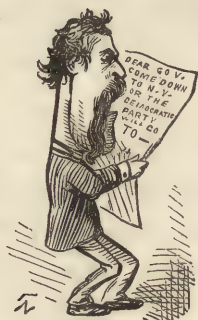 DEAR GOV.
COME DOWN
TO N.Y.
OR THE
DEMOCRATIC
PARTY
WILL GO
TO—